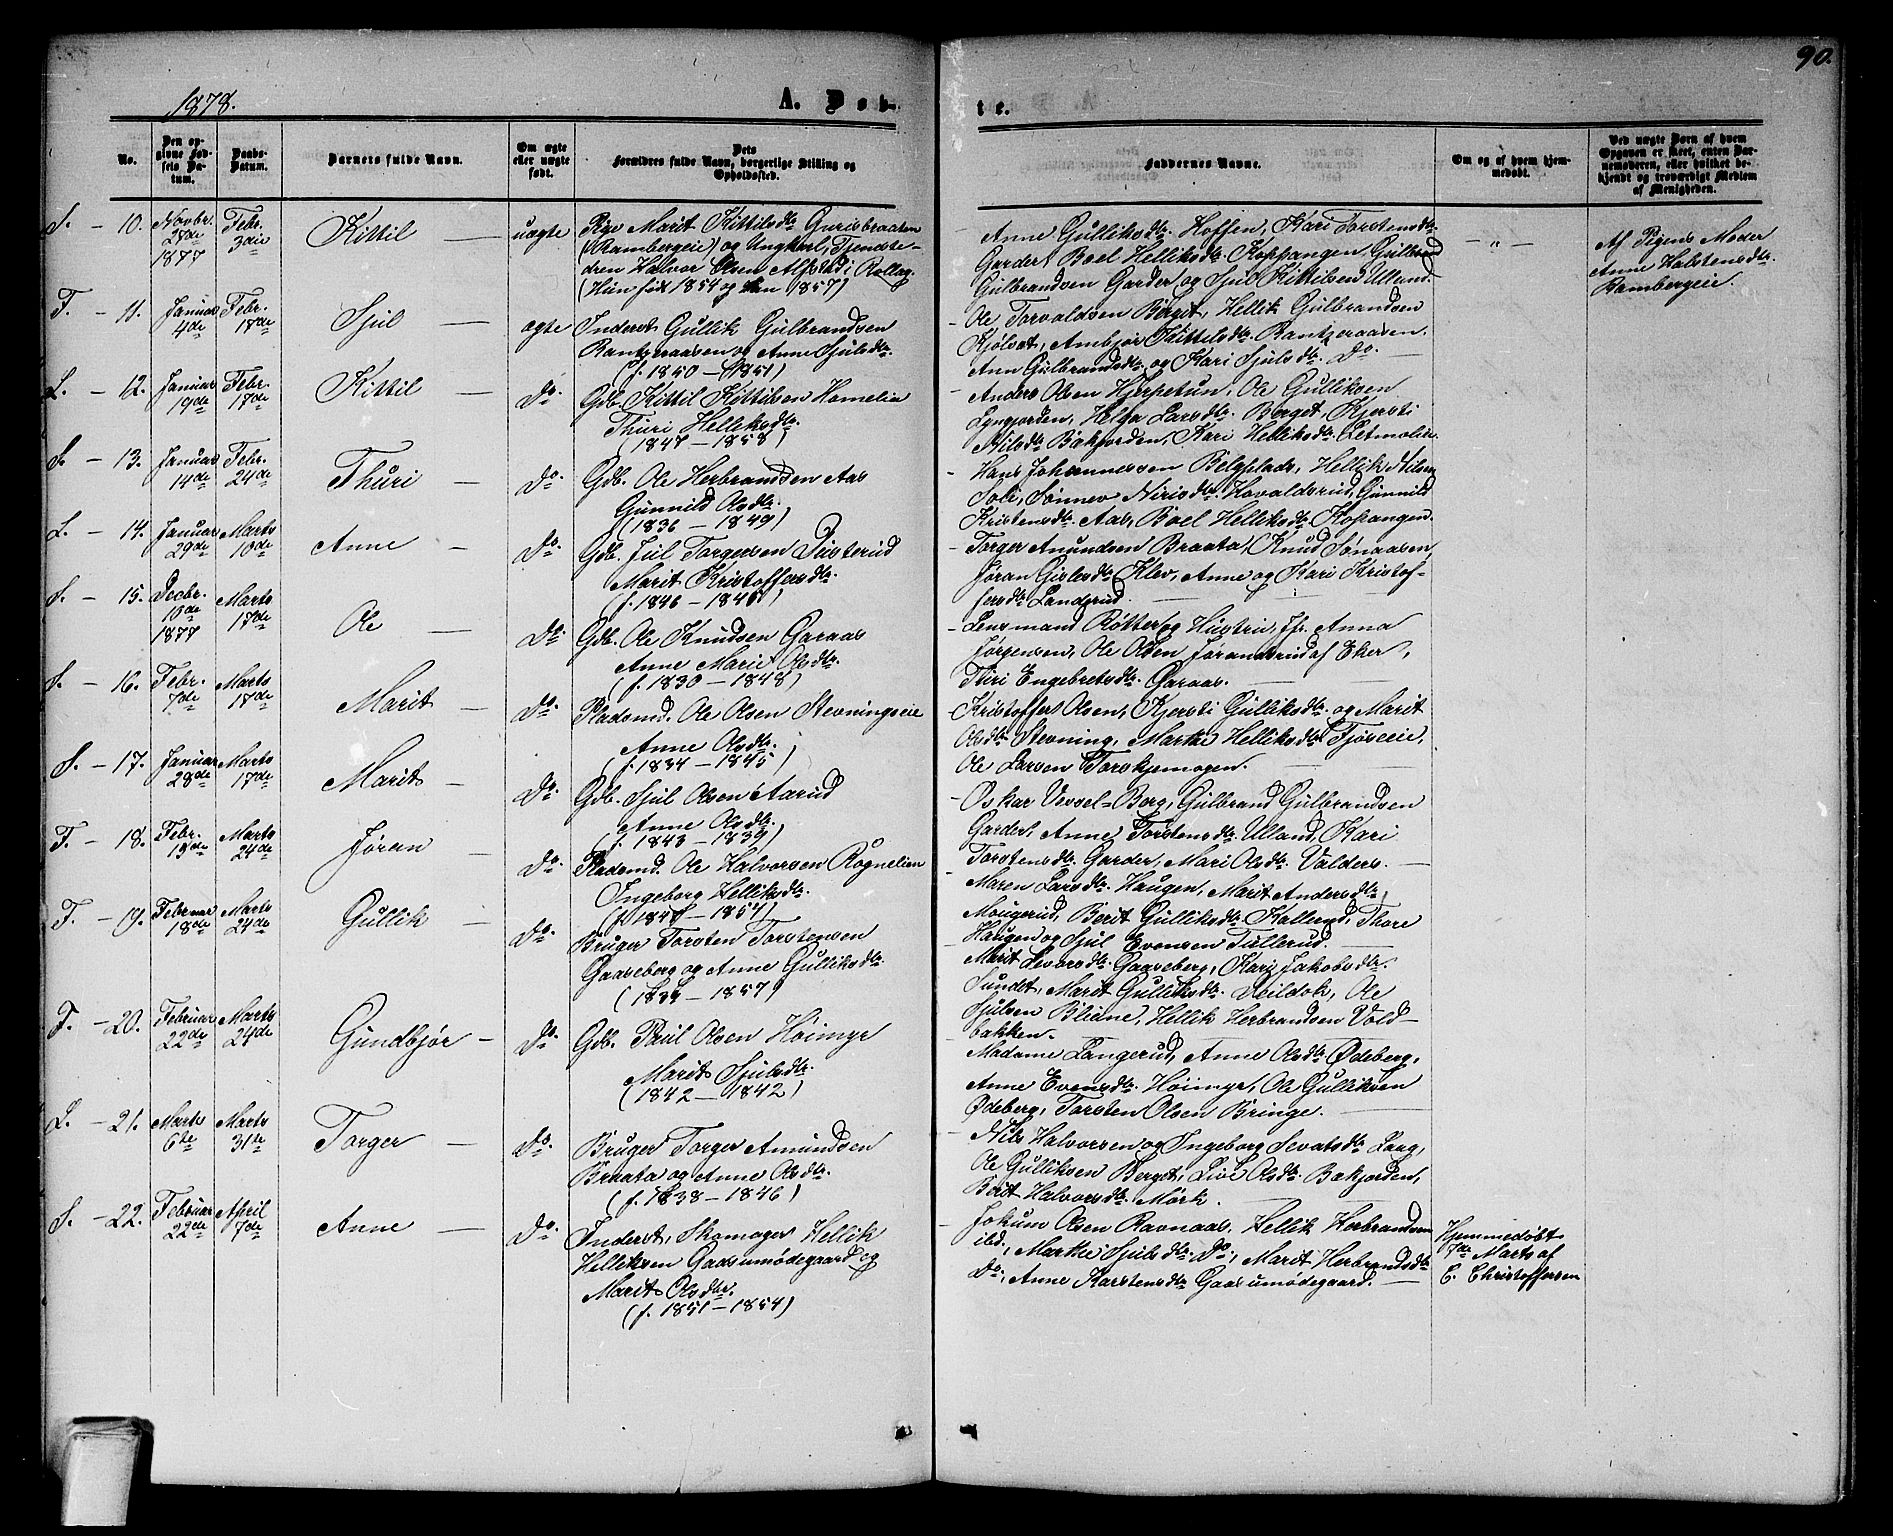 90.
1878.
A. Døb-
te.
No.
Den op-
givne Fød-
sels Da-
tum.
Daabs-
Datum.
Barnets fulde Navn.
Om ægte
eller uægte
født.
Dets
Forældres fulde Navn, borgerlige Stilling og
Opholdssted.
Faddernes Navne.
Om og af hvem hjem-
medøbt.
Ved uægte Børn af hvem
Opgaven er sket, enten Bar-
nemoderen, eller hvilket be-
kjendt og troværdigt Medlem
af Menigheden.
S. - 10.
Novbr.
28de
1877
Febr.
3die
Kittil
uægte
Pige Marit Kittilsdtr. Gurisbraaten
(Rambergeie) og Ungkarl, Tjendte-
dren Halvor Olsen Alfstad i Rollag
(Hun født 1854 og han 1857)
Anne Gulliksdtr. Hoffen, Kari Torstensdtr.
Garder, Boel Helliksdtr. Koppangen, Gulbrand
Gulbrandsen Garder og Sjul Kittilsen Ulland.
- " -
Af Pigens Moder
Anne Halstensdtr.
Rambergeie.
T. - 11.
Januar
4de
Febr.
18de
Sjul
ægte
Inderst Gullik Gulbrandsen
Rantzeraasen og Anne Sjulsdtr.
(f. 1850 - 1851)
- Ole Torvaldsen Berget, Hellik Gulbrandsen
Kjølset, Ambjør Kittilsdtr. Rantzeraasen,
Ann Gulbrandsdtr. og Kari Sjulsdtr. Do.
L. - 12.
Januar
19de
Febr.
17de
Kittil
Do.
Gdb. Kittil Kittilsen Homelia
Thuri Helliksdtr.
(1847 - 1858)
- Anders Olsen Hjerpetun, Ole Gulliksen
Lyngjorden, Helga Larsdtr. Berget, Kjersti
Nilsdtr. Bakjorden, Kari Helliksdtr. Letmolie.
S. - 13.
Januar
14de
Febr.
24de
Thuri
Do.
Gdb. Ole Herbrandsen Aas
Gunnild Olsdtr.
(1836 - 1849)
- Hans Johannessen Belgplads, Hellik Nilsen
Kristensdtr. Aas, Boel Helliksdtr. Kopangen.
L. - 14.
Januar
29de
Marts
10de
Anne
Do.
Gdb. Juul Torgersen
Marit Kristoffersdtr.
- Torger Amundsen Braata, Knud Sønaasen,
Jøran Gislesdtr. Klev, Anne og Kari Kristof-
fersdtr. Landsrud.
S. - 15.
Decbr.
10de
1877
Marts
17de
Ole
Do.
Gdb. Ole Knudsen Garaas
Anne Marie Olsdtr.
(f. 1830 - 1848)
- Lensmand Røtter og Hustru, Jfr. Anna
Jørgensen, Ole Olsen Jørandsrud af Eker,
Turi Engebretsdtr. Garaas.
S. - 16.
Febr.
7de
Marts
17de
Marit
Do.
Pladsmd. Ole Olsen Stevningseie
Anne Olsdtr.
(f. 1834 - 1845)
Kristoffer Olsen, Kjersti Gulliksdtr. og Marit
Olsdtr. Stevning, Marthe Helliksdtr. Fjøseie,
Ole Larsen Torskjemogen.
S. - 17.
Januar
28de
Marts
17de
Marit
Do.
Gdb. Sjul Olsen Aarud
Anne Olsdtr.
(f. 1843 - 1839)
- Oskar Vessel-Berg, Gulbrand Gulbrandsen
Garder, Anne Torstensdtr. Ulland, Kari
Torstensdtr. Garder, Mari Olsdtr. Valders.
T. - 18.
Febr.
Marts
24de
Jøran
Do.
Pladsmd. Ole Halvorsen Rognelien
Ingeborg Helliksdtr.
- Maren Larsdtr. Haugen, Marit Andersdtr.
Mougerud, Berit Gulliksdtr. Kallerud, Thore
Haugen og Sjul Evensen Tullerud.
T. - 19.
Februar
18de
Marts
24de
Gullik
Do.
Bruger Torsten Torstensen
Gaaseberg og Anne Gulliksdtr.
- Marit Sevorsdtr. Gaaseberg, Kari Jakobsdtr.
Sundet, Marit Gulliksdtr. Veildok, Ole
Sjulsen Bliane, Hellik Herbrandsen Vold-
bakken.
T. - 20.
Februar
22de
Marts
24de
Gundbjør
Do.
Gdb. Paul Olsen Høimyr
Marit Sjulsdtr.
(1842 - 1842)
- Madame Langerud, Anne Olsdtr. Ødeberg,
Anne Evensdtr. Høimyr, Ole Gulliksen
Ødeberg, Torsten Olsen Bringe.
L. - 21.
Marts
6te
Marts
31te
Torger
Do.
Bruger Torger Amundsen
Braata og Anne Olsdtr.
(f. 1838 - 1846)
- Nils Halvorsen og Ingeborg Sevatsdtr. Laag,
Ole Gulliksen Berget, Live Olsdtr. Bakjorden,
Berit Halvorsdtr. Mørk.
S. - 22.
Februar
22de
April
7de
Anne
Do.
Inderst, Skomager Hellik
Helliksen Gaasumødegaard og
Marit Olsdtr.
(f. 1851 - 1854)
- Jokum Olsen Ravnaas, Hellik Herbrandsen
ibd., Marthe Sjulsdtr. Do., Marit Herbrandsdtr.
Do., Anne Karstensdtr. Gaasumødegaard.
Hjemmedøbt
7de Marts af
C. Christoffersen